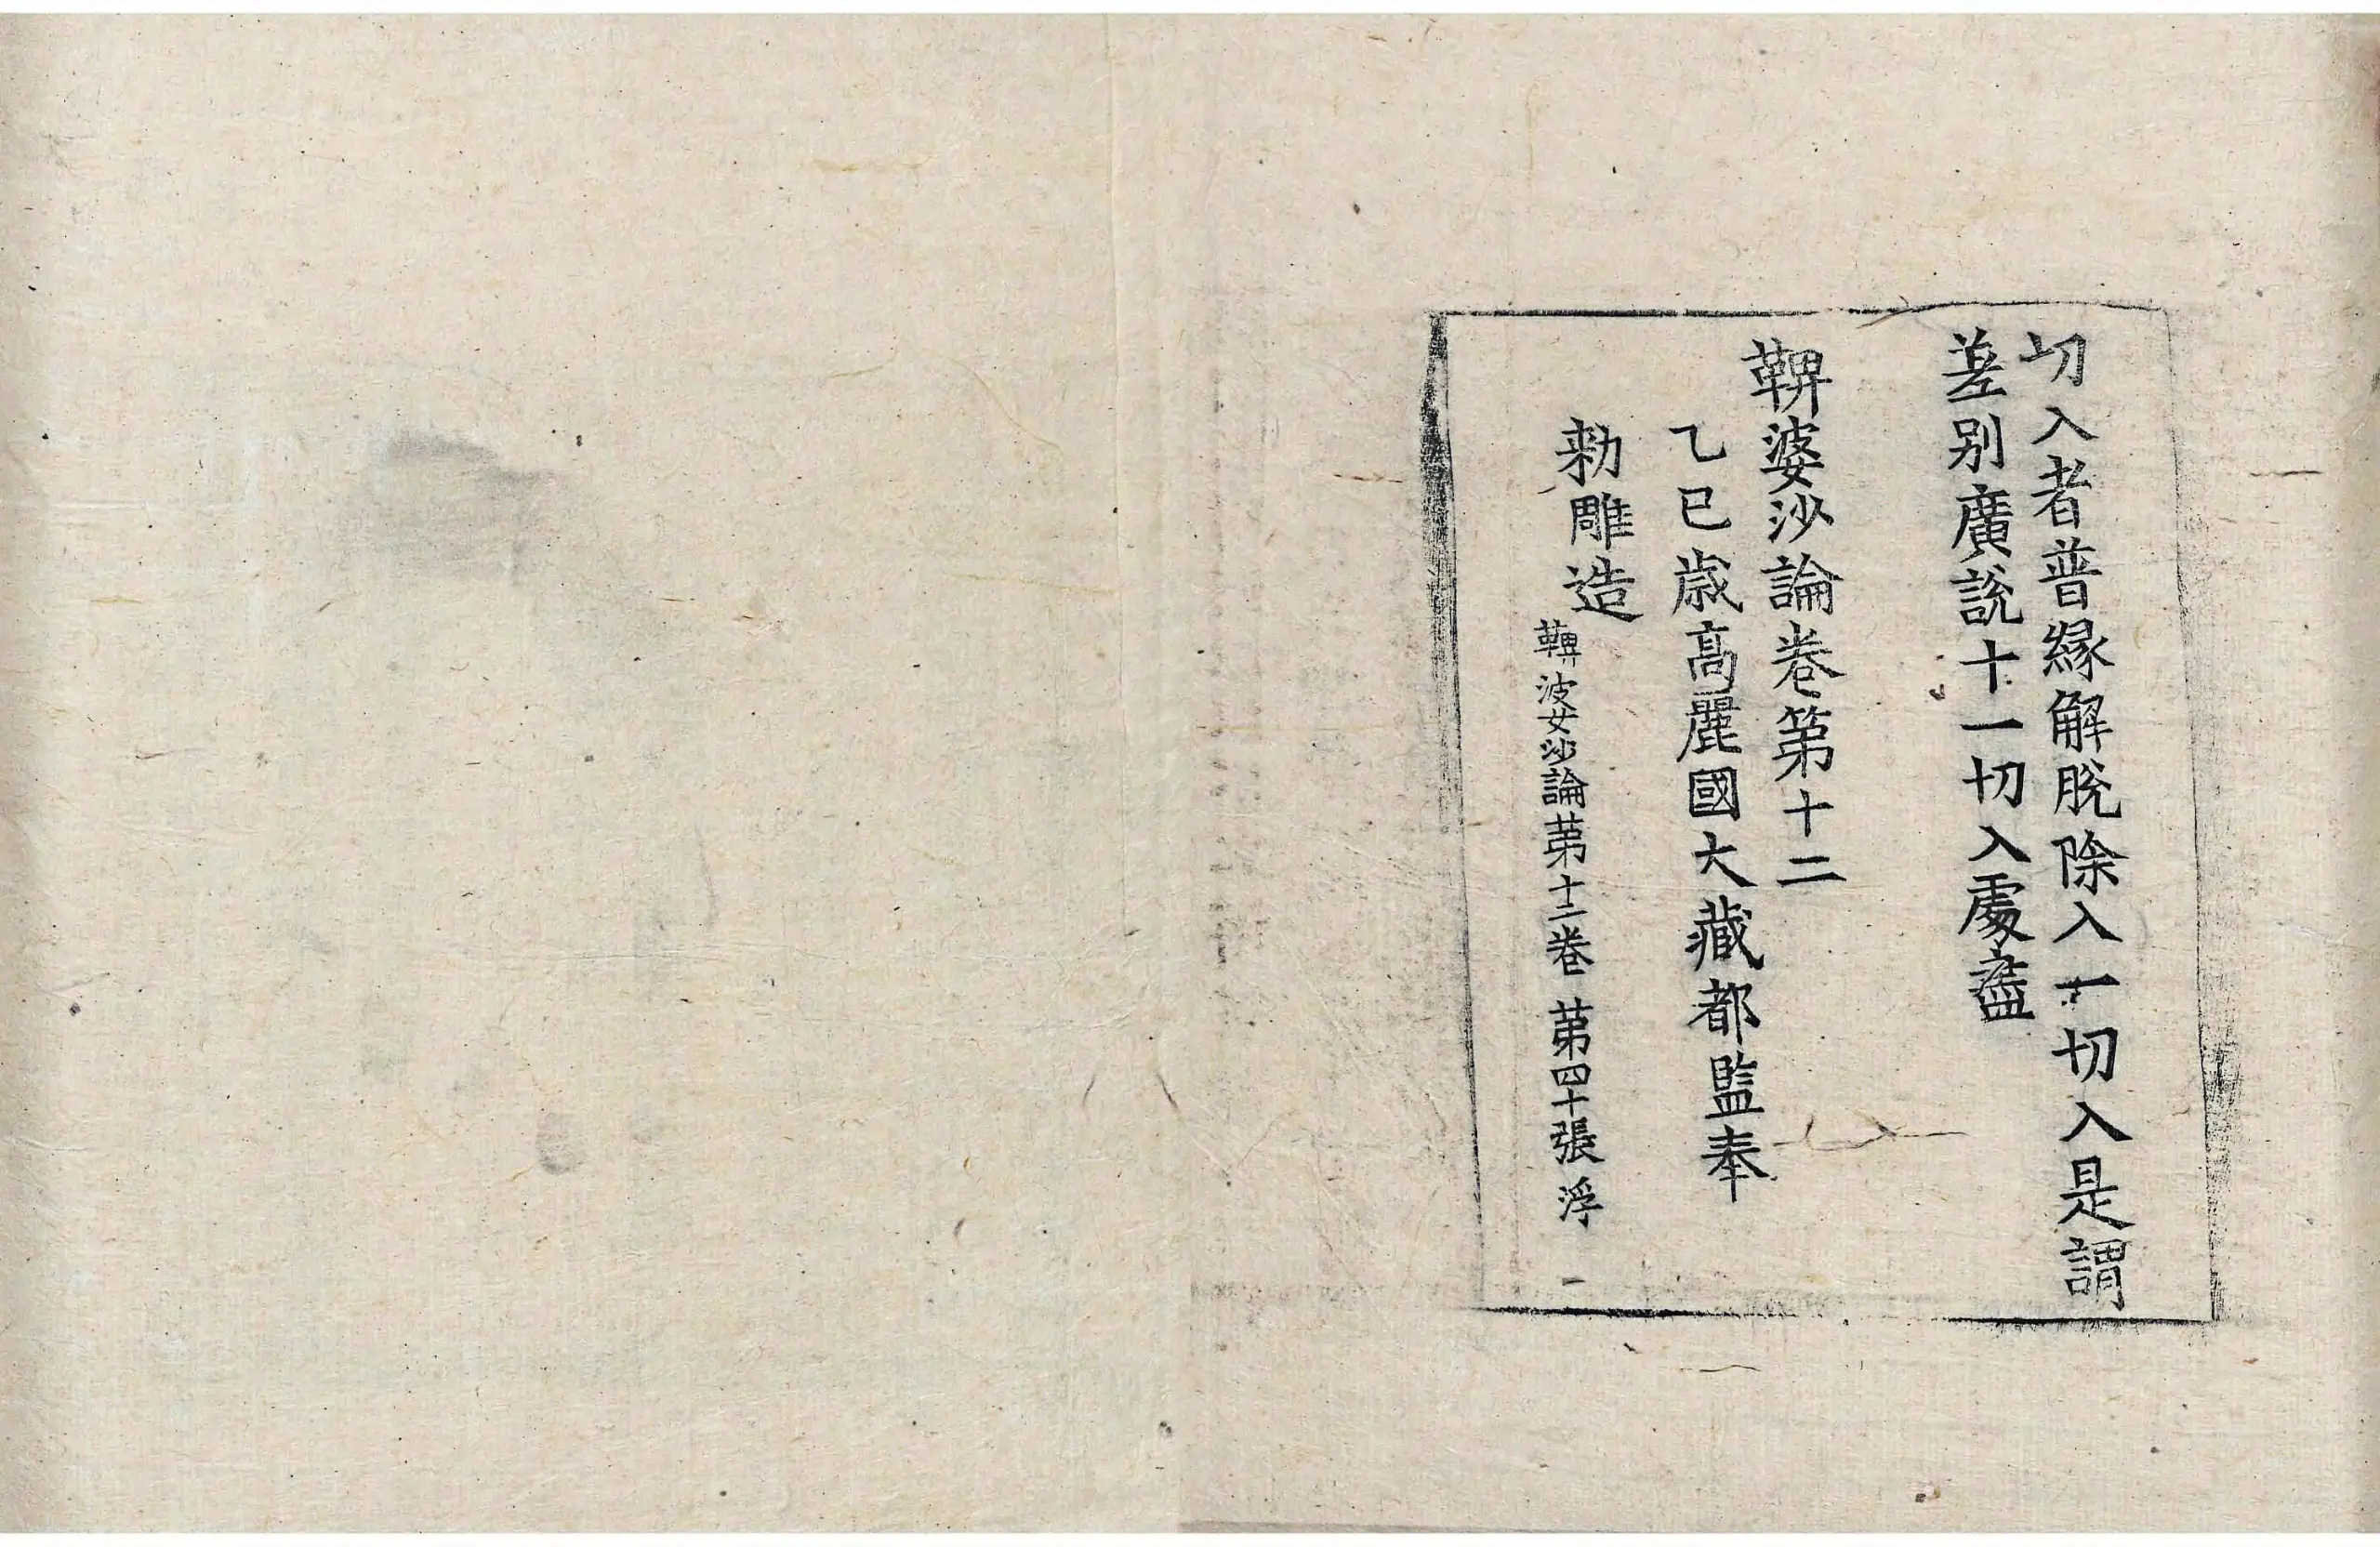 切入者普縁解脫除入一切入是謂
差别廣說十一切入處盡
鞞婆沙論卷第十二
乙巳歳高麗國大藏都監奉
勑雕造
鞞婆沙論苐十二卷 苐四十張 浮